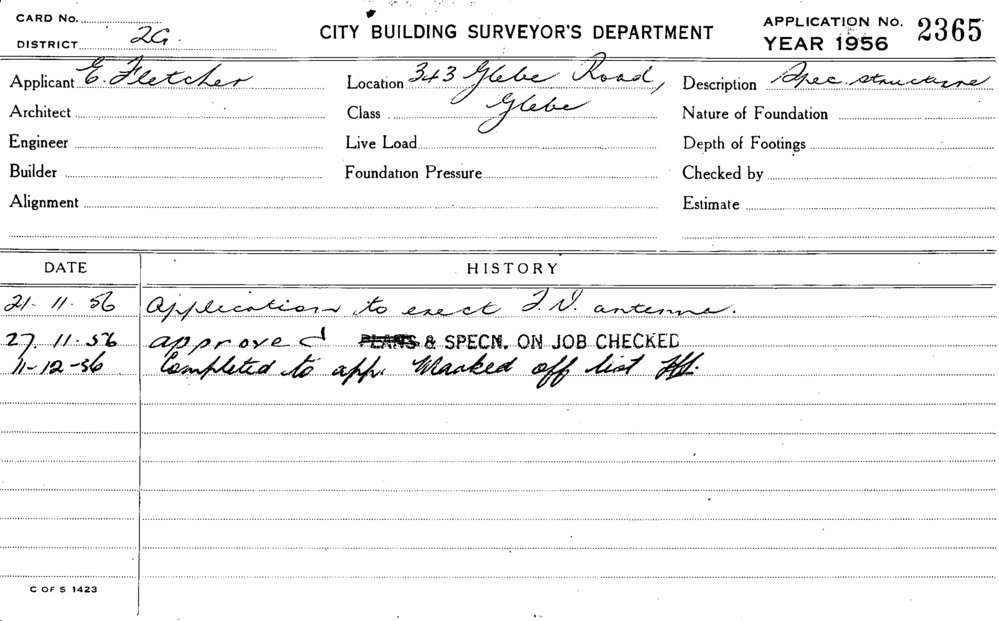 CARD No.
DISTRICT 2G.
CITY BUILDING SURVEYOR'S DEPARTMENT
APPLICATION No. 2365
YEAR 1956
Applicant E. Fletcher
Location 343 Glebe Road,
Description Spec. structure
Architect
Class Glebe
Nature of Foundation
Engineer
Live Load
Depth of Footings
Builder
Foundation Pressure
Checked by
Alignment
Estimate
DATE HISTORY
21. 11. 56 Application to erect T.V. antenna.
27. 11. 56 approved PLANS & SPECN. ON JOB CHECKED
11-12-56 Completed to app. Marked off list
C OF S 1423